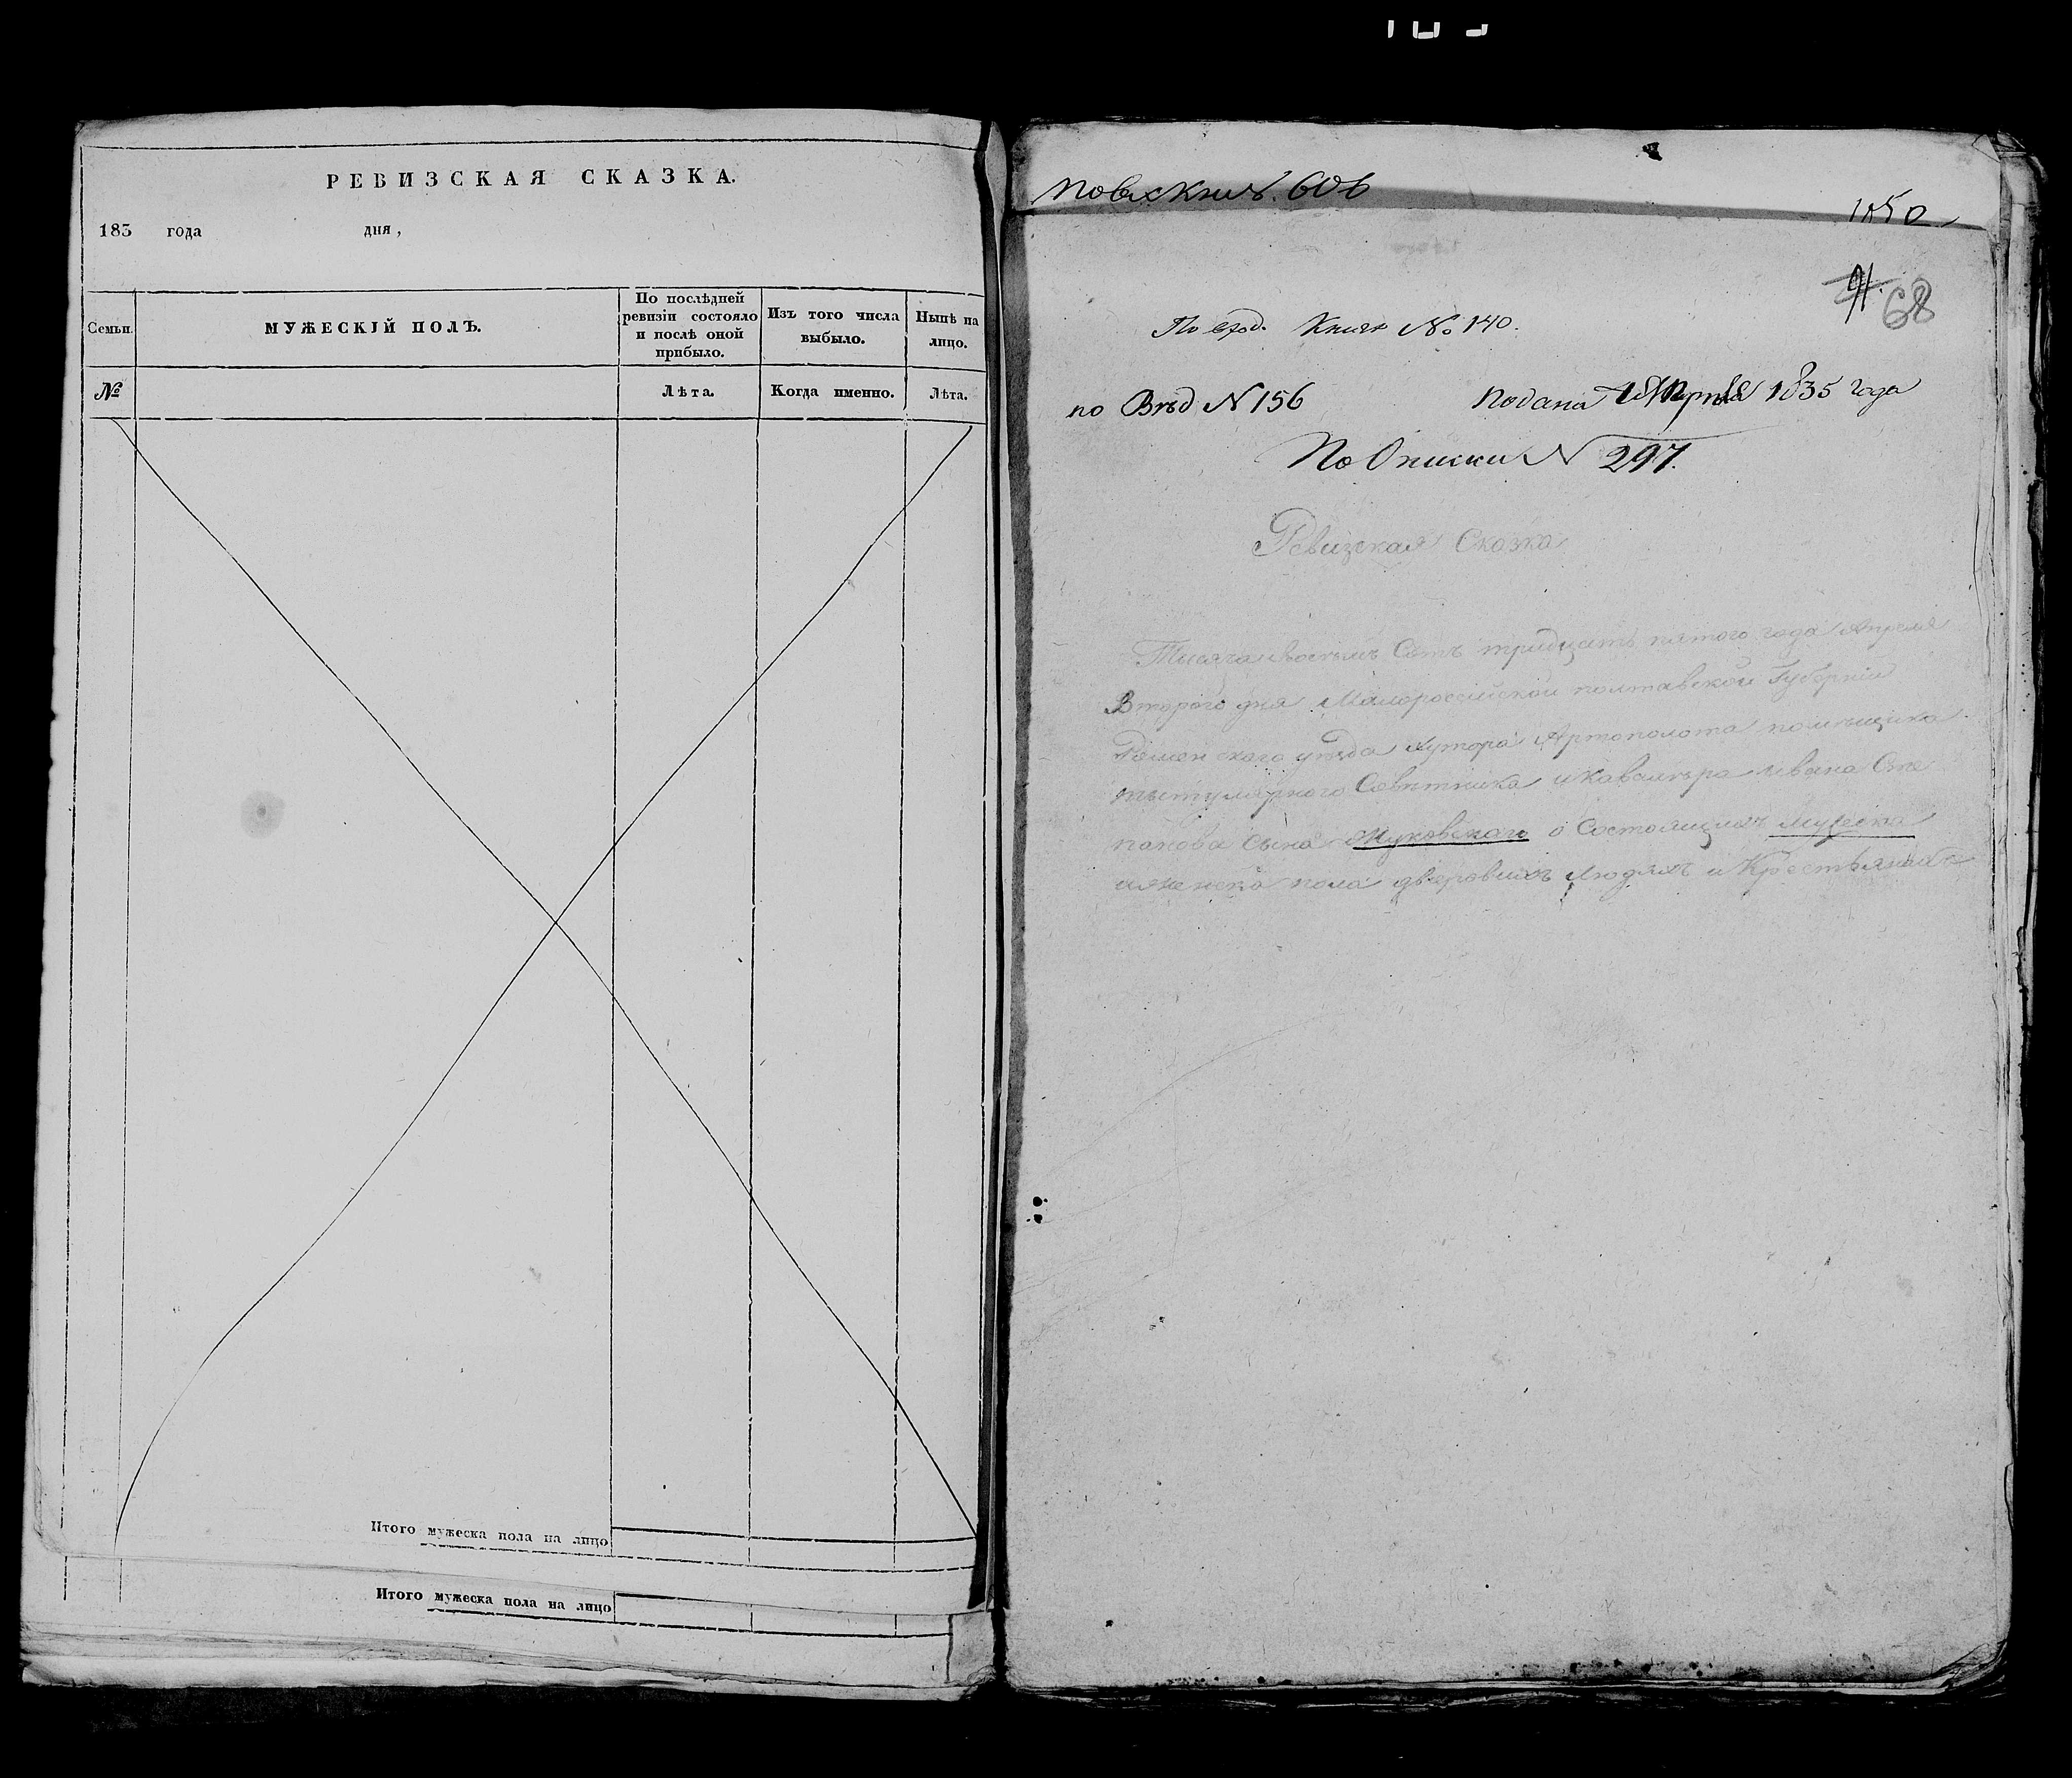 РЕВИЗСКАЯ СКАЗКА.
183 года дня,
Семьи.
МУЖЕСКІЙ ПОЛЪ.
По послѣдней
ревизіи состояло
и послѣ оной
прибыло.
Изъ того числа
выбыло.
Нынѣ на
лицо.
№
Лѣта.
Когда именно.
Лѣта.
Итого мужеска пола на лицо
Итого мужеска пола на лицо
1850
68
Книги № 140.
по Вѣд N 156
Подана 1835 года
По Описки N 297.
Ревизская Сказка
Тысяча восемъ Сотъ тридцать пятого года Апреля
Второго дня Малороссійской полтавской Губерніи
Роменского уѣзда хутора Артополота помѣщика
титулярного Совѣтника и кавалѣра Ивана Сте
панова сына Жуковскаго о Состоящихъ мужеска
иженска пола дворовыхъ людяхъ и Крестьянахъ